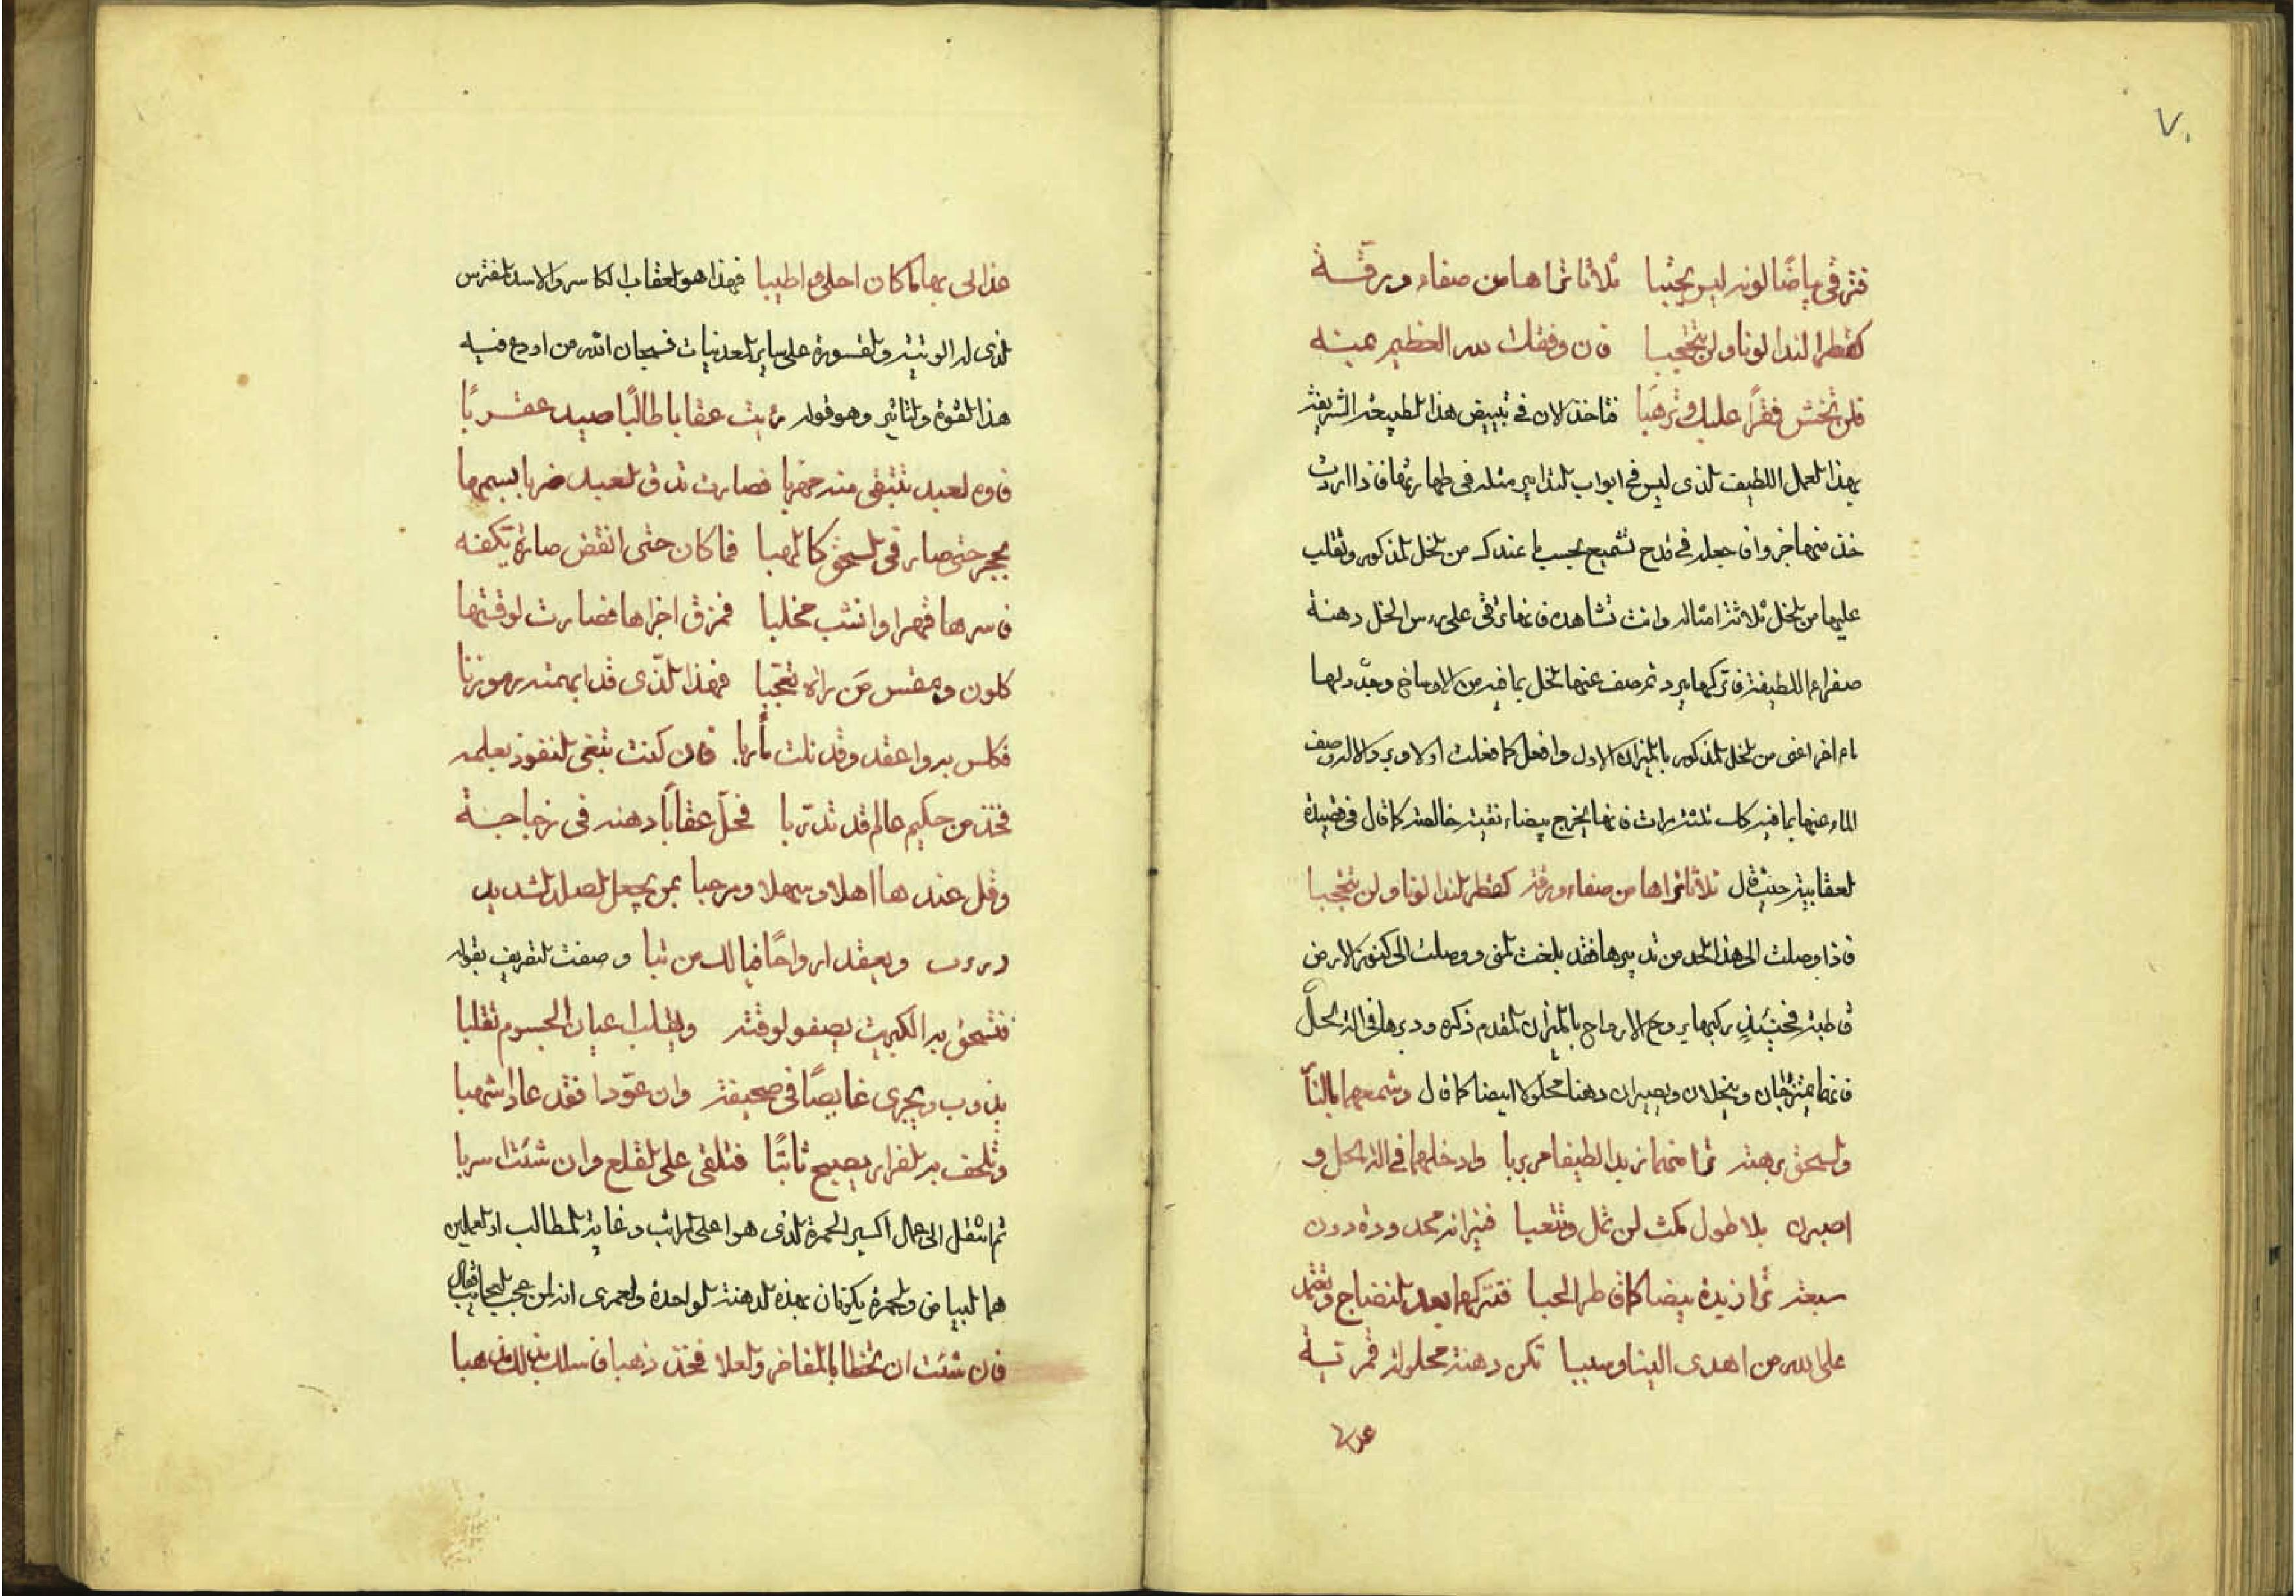 ٧٠
فترقى بياضا لونه ليس يحتبا ثلاثا تراها من صفاء ورقة
كقطر الندا لونا ولن يتحجبا فان وفقك لله العظيم بمنه
فلن تخش فقرًا عليك وترهبا فتاخذ الان في تبييض هذا الطبيعة الشريفة
بهذا العمل اللطيف الذى ليس في ابواب التدابير مثله في طهارتها فاذا اردت
خذ منها جزوا واجعله في قدح تشميع بحسب ما عندك من الخل المذكور وتقلب
عليها من الخل ثلاثة امثاله وانت تشاهده فانها ترقى على روس الخل دهنة
صفراء اللطيفة فاتركها يبرد ثم صف عنها الخل بما فيه من الاوساخ وجدد لها
ماء اخر اعنى من الخل المذكور بالميزان الاول وافعل كما فعلت اولا وبرد والا وصف
الماء عنها بما فيه كان ثلثة مرات فانها يخرج بيضاء نقية خالصة كما قال في قصيدة
العقابية حيث قال ثلاثا تراها من صفاء ورقة كقطر الندا لونا ولن يتحجبا
فاذا وصلت الى هذا الحد من تدبيرها فقد بلغت المنى ووصلت الى كنوز الارض
قاطبة فحينئذ ركبها بروح الارواح بالميزان المقدم ذكره ودبرها في الة الحل
فانهما يمتزجان وينحلان ويصيران دهنا محلولا ابيضا كما قال وشمعهما بالنار
والسحق برهة ترا منهما زبدا لطيفا مربربا وادخلهما في الة الحل و
اصبرن بلا طول مكث لن تمل وتتعبا فنيرانه محدودة دون
سبعة ترا زبدة بيضا كما قاطر الحبا فتتركهما بعد النضاج وتعتمد
على الله من اهدى الينا وصببا تكن دهنة محلولة قمرتية
هذا لى بها كما كان احلى واطيبا فهذا هو العقاب الكاسر والاسد المفترس
الذى له الوثبة والقسورة على ساير المعدنيات فسبحان الله من اودع فيه
هذا القوة والتاثير وهو قوله رايت عقابا طالبًا صيد عقربًا
فاوه العبد تبتغى منه مهربا فصارت تذق العبد ضربا بسمها
بحجر حتى صار في السحق كالهبا فما كان حتى انقض صارة بكفه
فاسرها قهرا وانشب مخلبا فمزق اجزاها فصارت لوقتها
كلون ومقتس من راه تعجبا فهذا الّذى قد ابهمته رموزنا
فكلس به واعقد وقد نلت مأربا فان كنت تبغى النفوذ بعلمه
فخذ من حكيم عالم قد تدربا فحلّ عقابًا دهنه فى زجاجة
وقل عندها اهلا وسهلا ومرحبا بمن يجعل الصلد الشديد
ويعقد ارواحًا فيا لك من نبا وصفت التعريف بقوله
فتسحق به الكبريت يصفو لوقته ويقلب اعيان الجسوم تقلبا
يذوب ويجرى غايصًا فى صحيفة وان عوّدا فقد عاد اشهبا
وتلحف به الفرار يصبح ثابتًا فتلقى على القلع وان شئت اسربا
ثم انتقل الى عمال اكسير الحمرة الذى هو اعلى المراتب وغاية المطالب اذ العملين
هما البياض والحمرة يكونان بهذه الدهنة الواحدة ولعمرى انه لمن عجب العجايب فقال
فان شئت ان تحظا بالمفاخر والعلا فخذ ذهبا فاسلك بذلك مذهبا